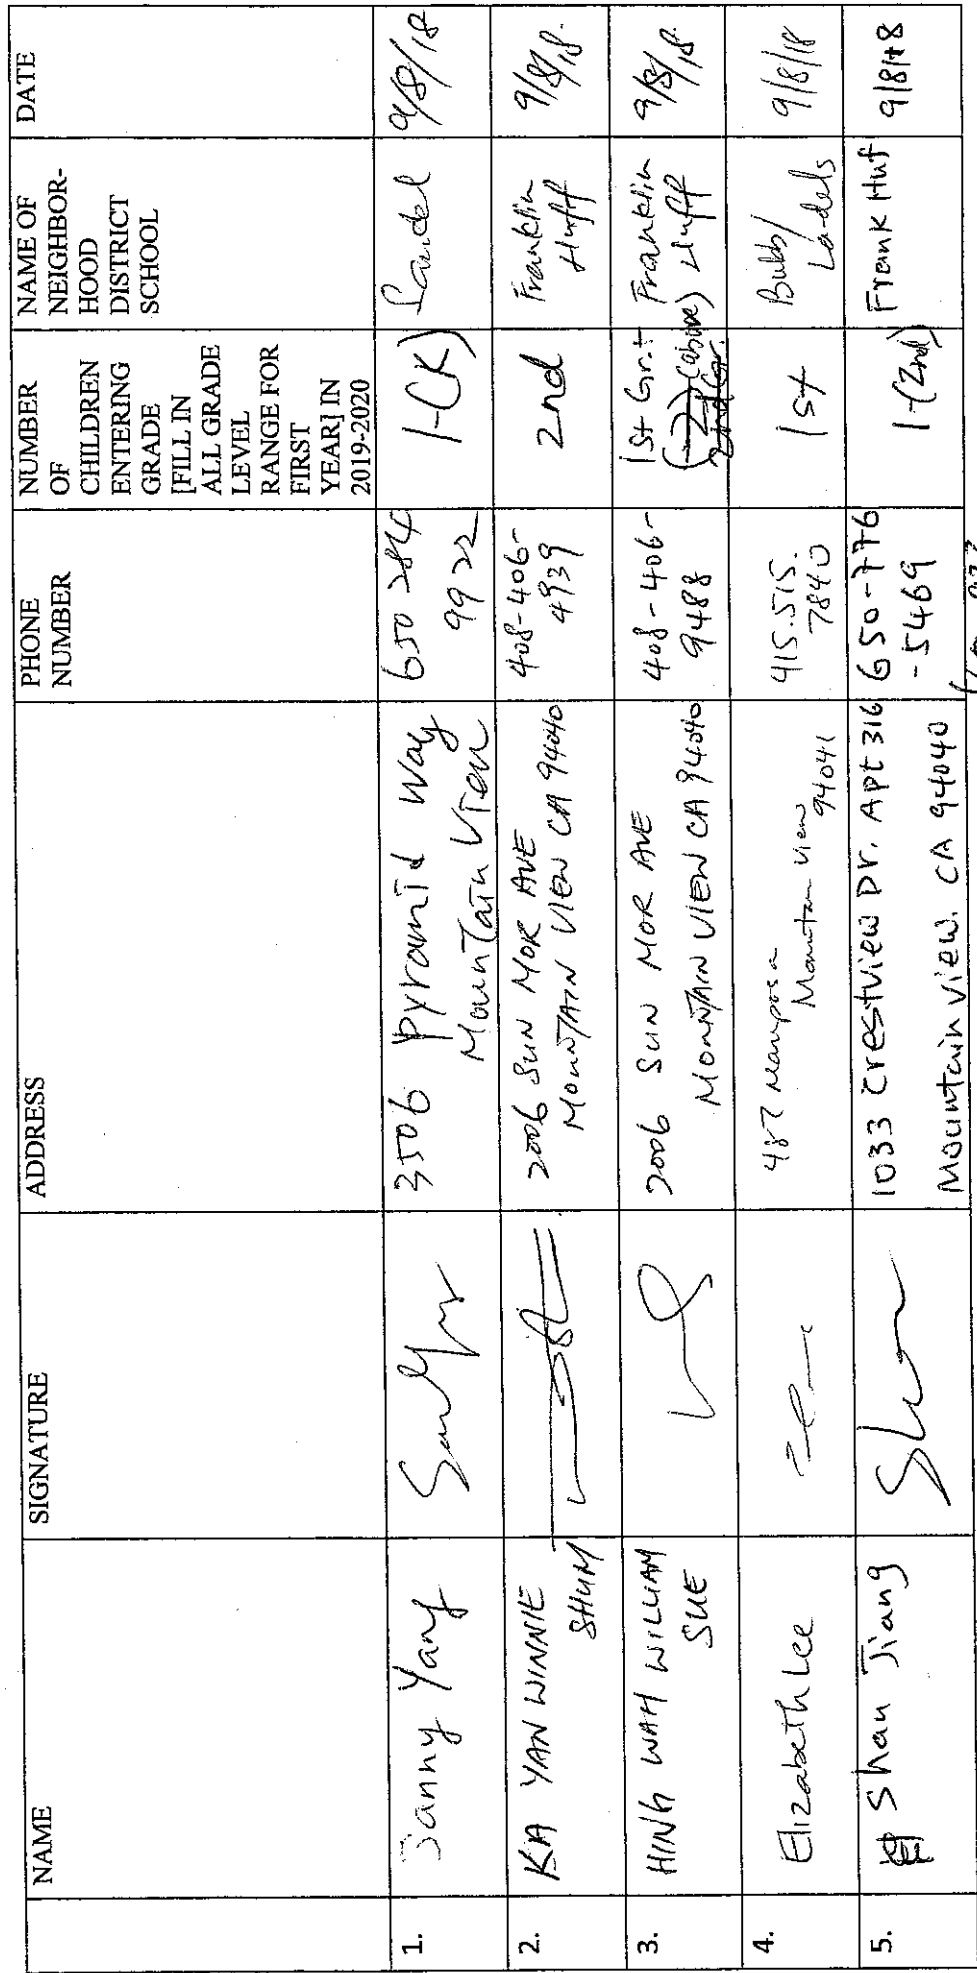 NAME
SIGNATURE
ADDRESS
PHONE
NUMBER
NUMBER
OF
CHILDREN
ENTERING
GRADE
[FILL IN
ALL GRADE
LEVEL
RANGE FOR
FIRST
YEAR] IN
2019-2020
NAME OF
NEIGHBOR-
HOOD
DISTRICT
SCHOOL
DATE
1.
Yang
3506 Pyramid Way
Mountain View
650 284
9922
1-(K)
9/8/18
2.
KA YAN WINNIE
SHUM
2006 SUN MOR AVE
MOUNTAIN VIEW CA 94040
408-406-
4939
2nd
Franklin
Huff
9/8/18.
3.
HING WAH WILLIAM
SUE
2006 SUN MOR AVE
MOUNTAIN VIEW CA 94040
408-406-
9488
1st Gr.+
(above)
Franklin
Huff
9/8/18.
4.
Elizabeth Lee
487 Mariposa
Mountain View
94041
415.515.
7840
1st
Bubb/
9/8/18
5.
Shan Jiang
1033 Crestview Dr. Apt 316
Mountain View. CA 94040
650-776
-5469
1-(2nd)
Frank Huf
9/8/18